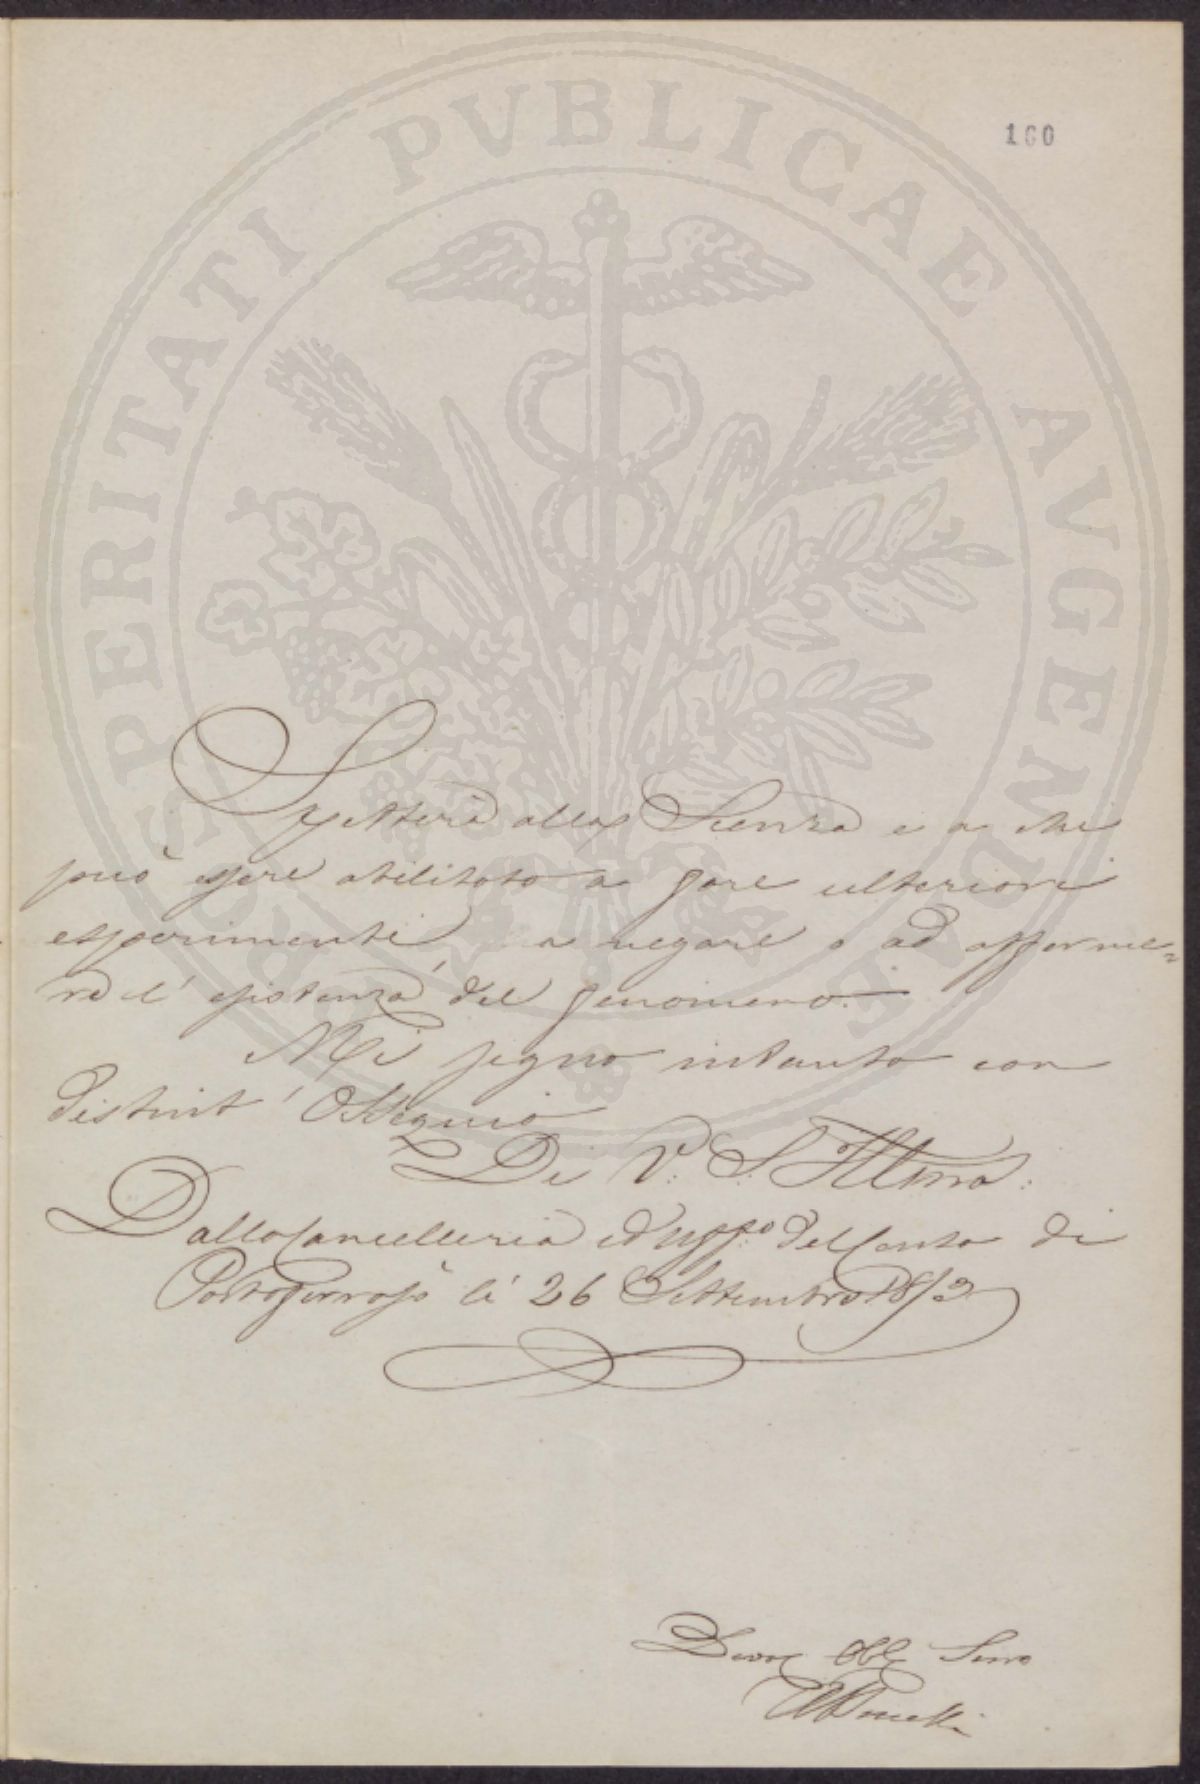 160
PROSPERITATI PVBLICAE AVGENDAE
Spetterà alla Scienza e a chi
può essere abilitato a fare ulteriori
esperimenti, a negare o ad afferma=
re l'esistenza del fenomeno.
Mi segno intanto con
distint' Ossequio
Di V. S. Illma:
Dalla Cancelleria ed Uffo. del Conto di
Portoferrajo li 26 Settembre 18
Devo Obbo Servo